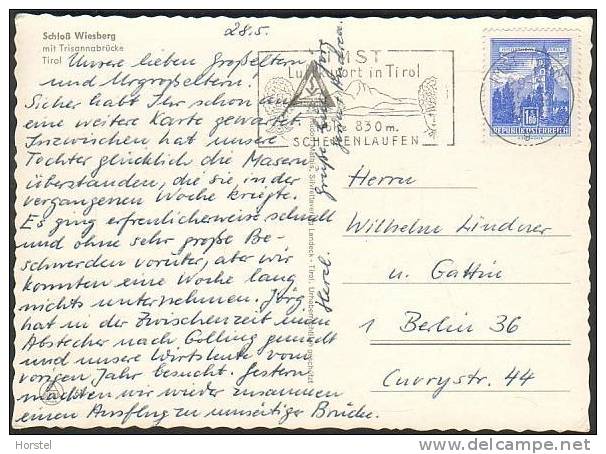 Schloß Wiesberg
mit Trisannabrücke
Tirol
28.5.
Unsere lieben Großeltern
und Urgroßeltern!
Sicher habt Ihr schon auf
eine weitere Karte gewartet.
Inzwischen hat unsere
Tochter glücklich die Masern
überstanden, die sie in der
vergangenen Woche kriegte.
Es ging erfreulicherweise schnell
und ohne sehr große Be-
schwerden vorüber, aber wir
konnten eine Woche lang
nichts unternehmen. Jörg
hat in der Zwischenzeit einen
Abstecher nach Golling gemacht
und unsere Wirtsleute vom
vorigen Jahr besucht. Gestern
machten wir wieder zusammen
einen Ausflug zu umseitiger Brücke.
Herzl. Grüße
IST
Luftkurort in Tirol
830 m.
SCHEMENLAUFEN
REPUBLIK ÖSTERREICH
Landeck - Tirol.
Herrn
Wilhelm Lindner
u. Gattin
1 Berlin 36
Cuvrystr. 44
Horstel
delcampe.net